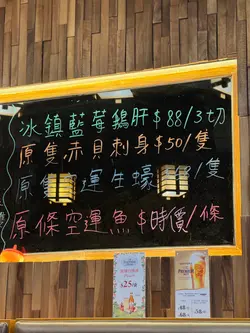 冰鎮藍莓鵝肝$88/3切
原隻赤貝刺身$50/隻
原隻空運生蠔 /隻
原條空運魚$時價/條
$25/
PREMIUM